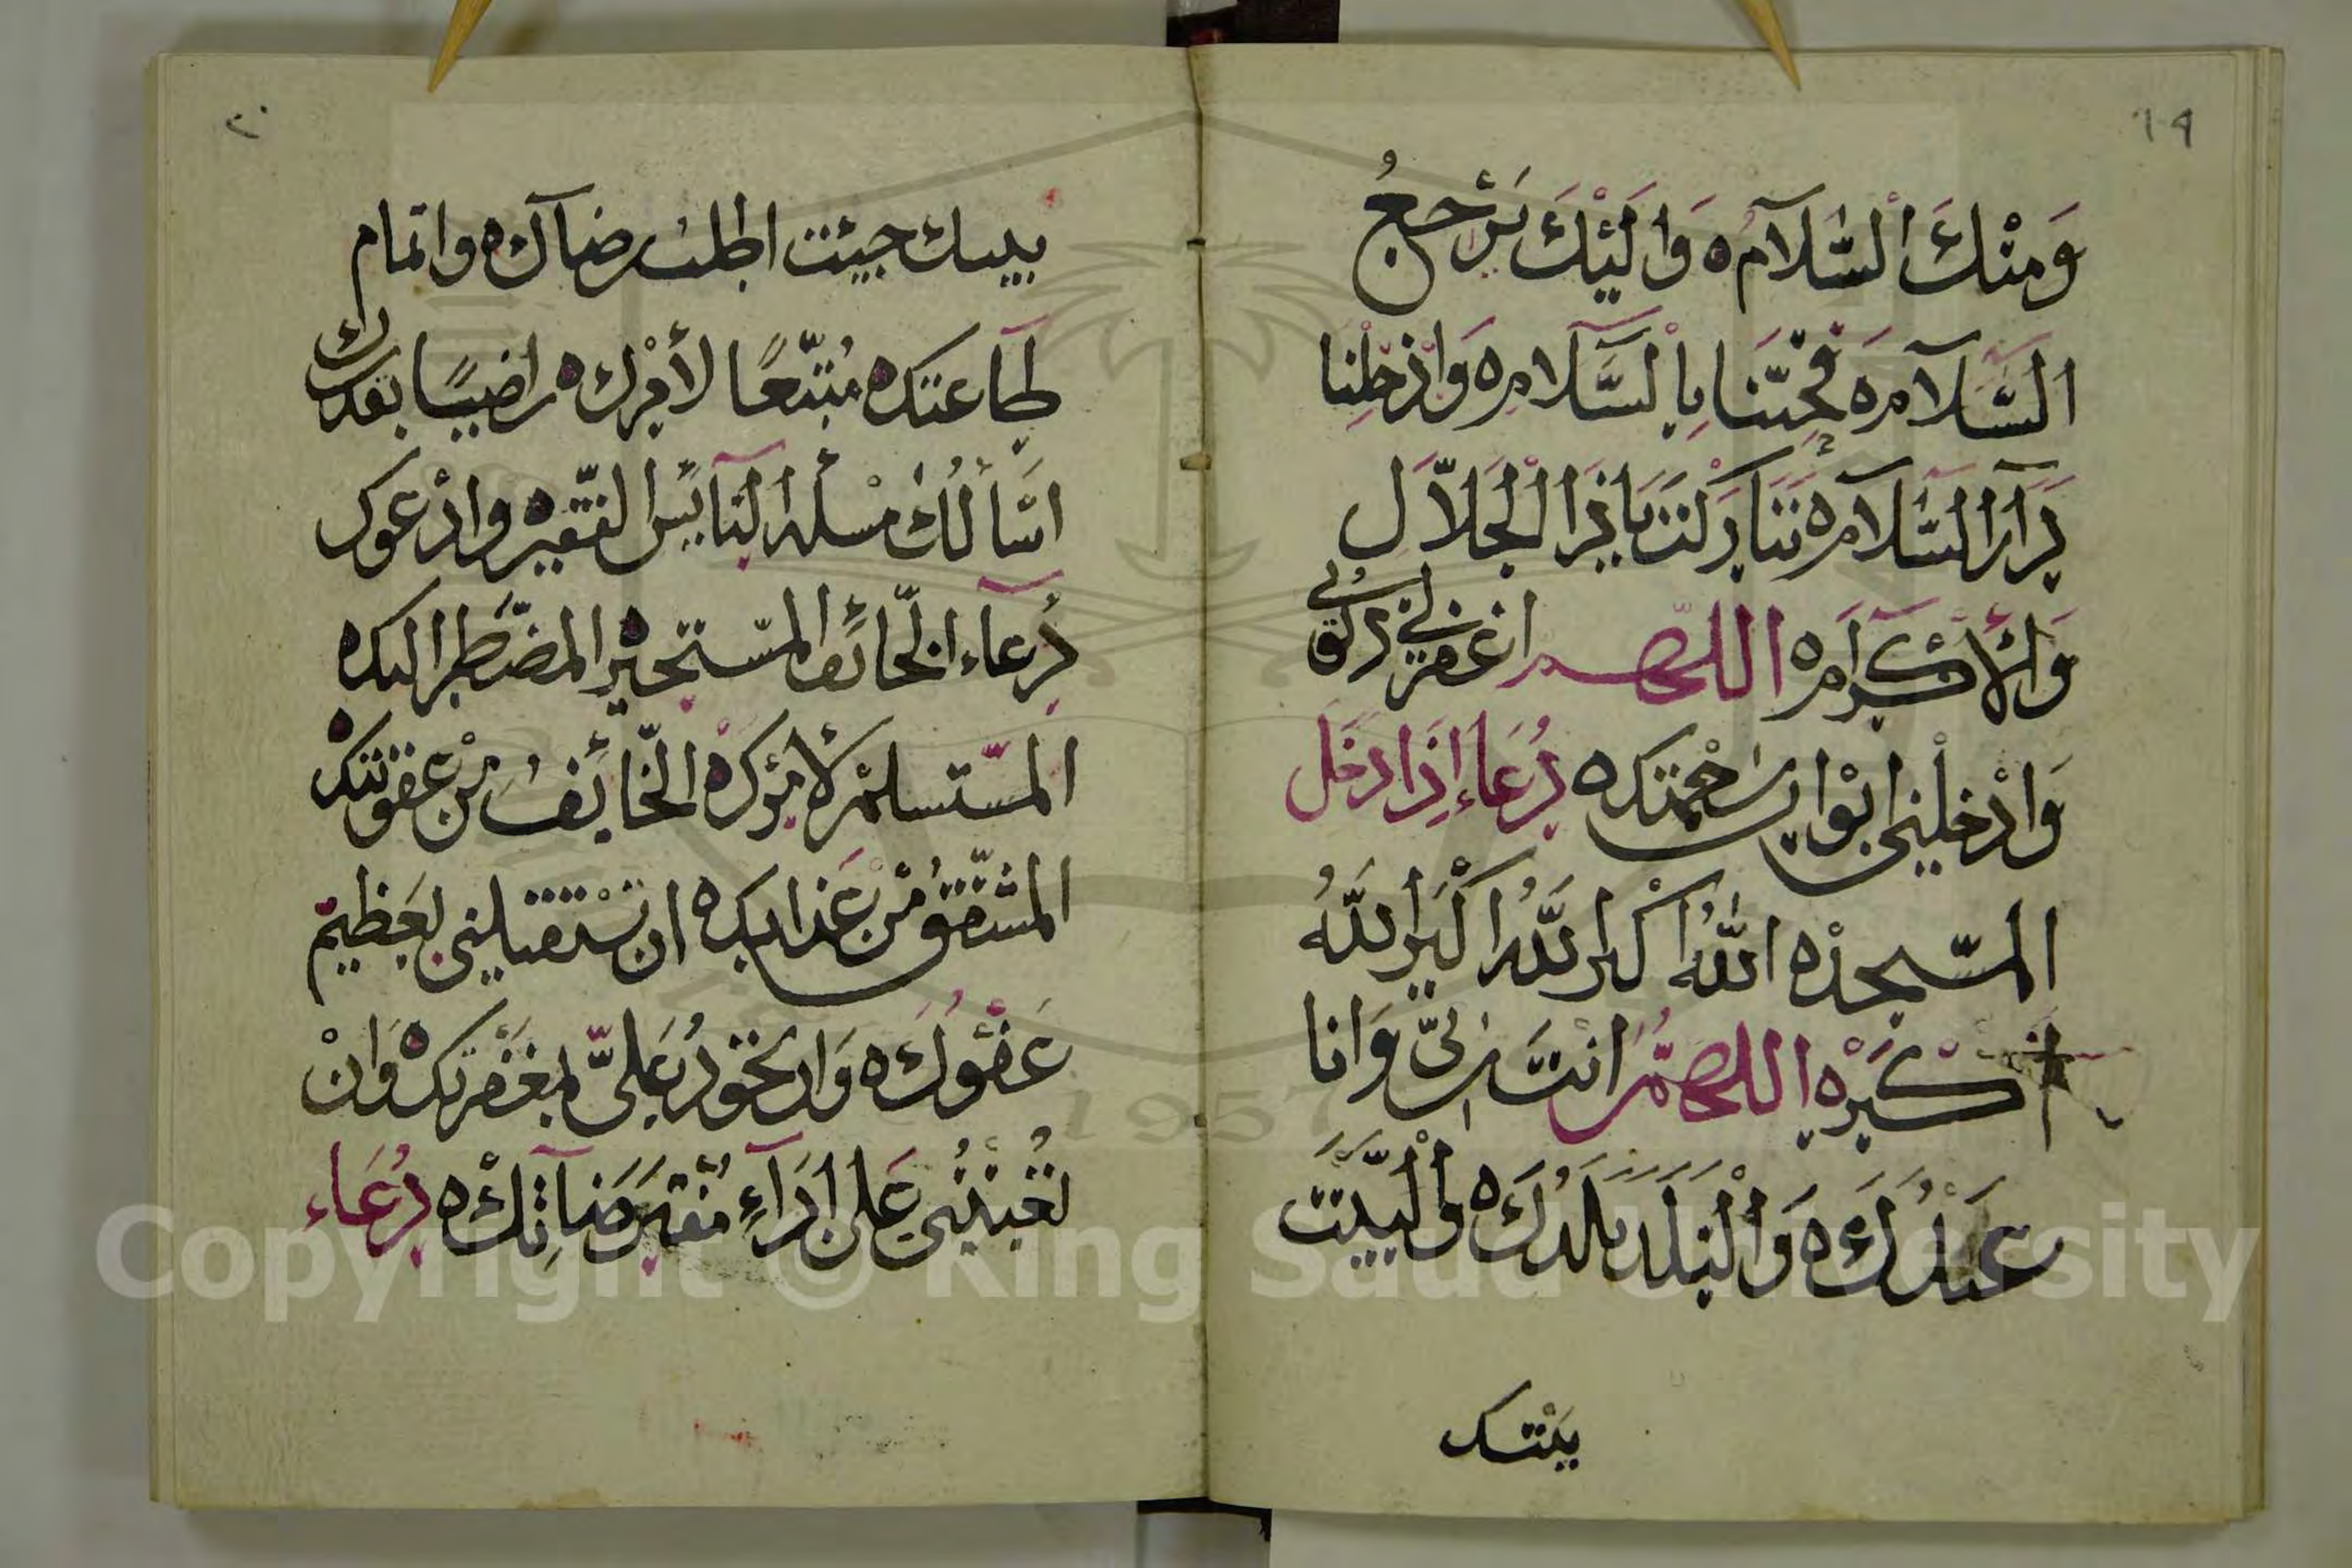 ١٩
وَمِنْكَ اَلسَّلَامُ ه وَاِلَيْكَ يَرْجِعُ
السَّلَام ه فَحَيِّنَا بِالسَّلَامِ ه وَادْخِلْنَا
دَارَ السَّلَام ه تَبَارَكْتَ يَاذَا الْجَلَالِ
وَالْاِكْرَام ه اللهم اغفرلي ذنوبي
وَادْخِلْني ابْوابَ رَحْمَتك ه دُعَاء اِذَا دَخَلَ
المسْجد ه اللهُ اكْبر اللهُ اكْبَر اللهُ
اكْبَرْ ه اللهمَّ انتَ رَبّي وَانا
عَبْدُكَ ه وَالْبَلَد بَلَدُكَ ه وَالْبَيْتَ
بَيْتك
٢٠
بيتك جيئت اطلب رضاك ه واتمام
طاعتك ه مُتّبعًا لأمْرك ه راضيًا بقدرك
اسَّألُكَ مسْئلة البَآيس الفقيره وادْعوك
دُعآء الخَّائف المسّتجير المضّطر اليك ه
المسّتسلم لأمرك ه الخّائفُ منْ عقوبتك ه
المشّفق منْ عَذابك ه ان تسْتقبلني بعَظيم
عَفْوكَ ه وَان تجود عَليَّ بمغفرتك ه وَانْ
تُعينُني عَلى ادَآءِ مُفْتَرَضاتِك ه دُعَاء
Copyright © King Saud University
1957